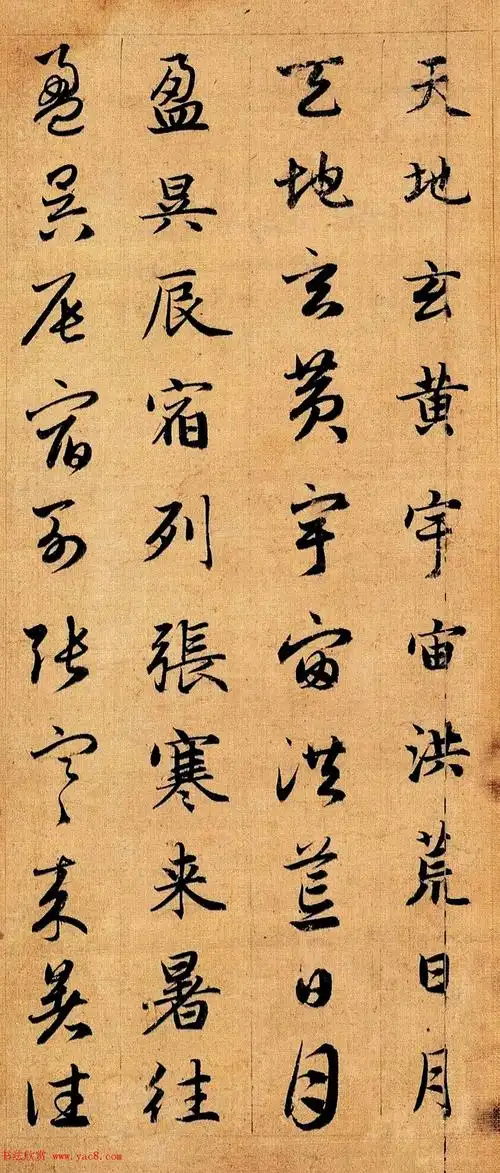 天地玄黄宇宙洪荒日月
天地玄黄宇宙洪荒日月
盈昃辰宿列張寒来暑往
盈昃辰宿列張寒来暑往
书法欣赏 www.yac8.com